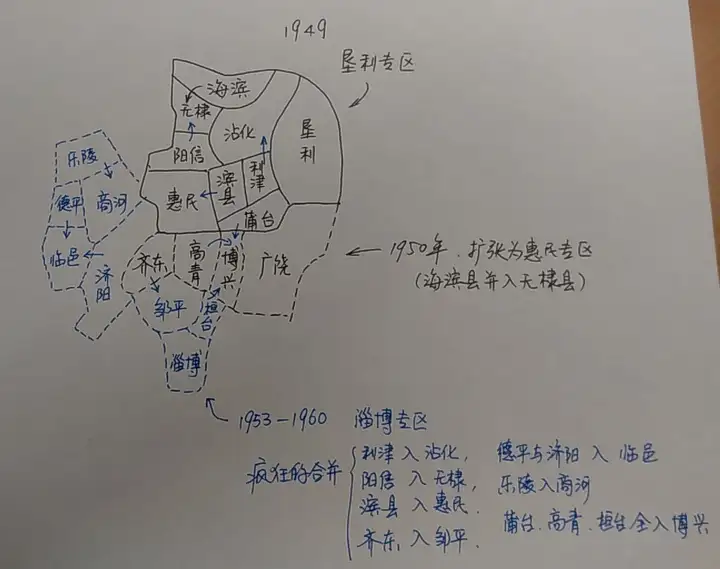 1949
垦利专区
海滨
无棣
沾化
垦利
阳信
乐陵
德平
商河
惠民
滨县
利津
蒲台
临邑
济阳
齐东
高青
博兴
广饶
邹平
桓台
淄博
1950年.扩张为惠民专区
(海滨县并入无棣县)
1953-1960 淄博专区
疯狂的合并
利津入沾化, 德平与济阳入临邑
阳信入无棣, 乐陵入商河
滨县入惠民.
蒲台.高青.桓台全入博兴
齐东入邹平.